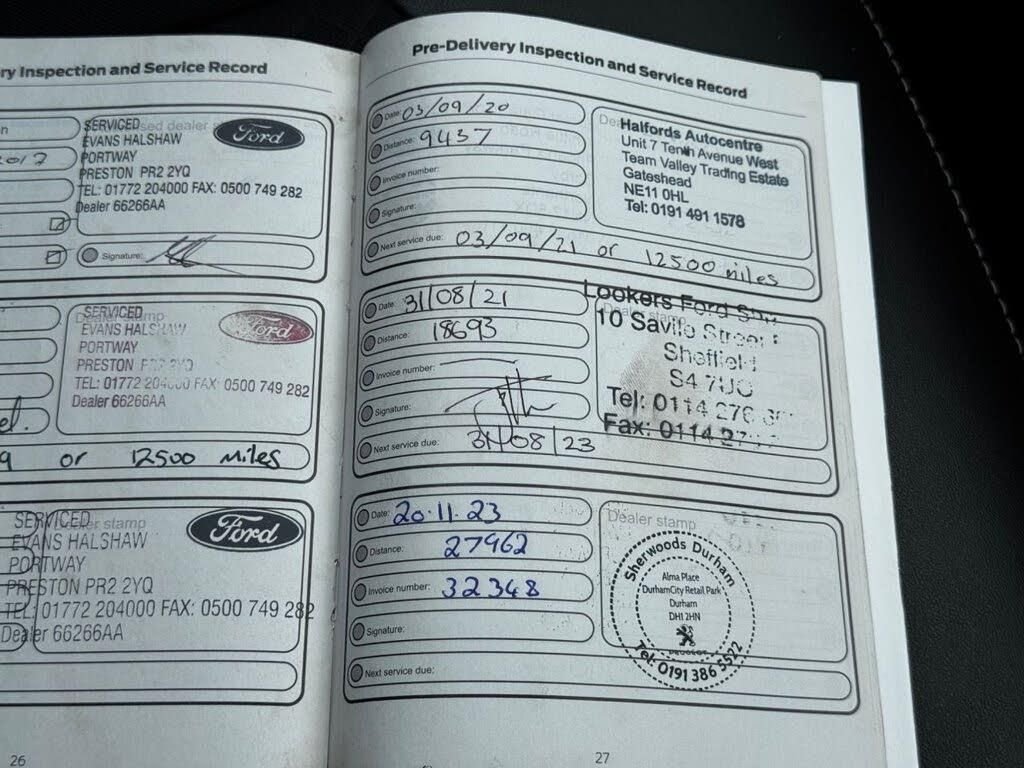 ry Inspection and Service Record
SERVICED
EVANS HALSHAW
PORTWAY
PRESTON PR2 2YQ
TEL: 01772 204000 FAX: 0500 749 282
Dealer 66266AA
Ford
Signature:
SERVICED
Dealer stamp
EVANS HALSHAW
PORTWAY
PRESTON
TEL: 01772 204000 FAX: 0500 749 282
Dealer 66266AA
Ford
or 12500 miles
SERVICED
Dealer stamp
EVANS HALSHAW
PORTWAY
PRESTON PR2 2YQ
TEL: 01772 204000 FAX: 0500 749 282
Dealer 66266AA
Ford
26
Pre-Delivery Inspection and Service Record
Date: 03/09/20
Distance: 9437
Invoice number:
Signature:
Next service due: 03/09/21 or 12500 miles
Halfords Autocentre
Unit 7 Tenth Avenue West
Team Valley Trading Estate
Gateshead
NE11 0HL
Tel: 0191 491 1578
Date: 31/08/21
Distance: 18693
Invoice number:
Signature:
Next service due: 31/08/23
Lookers Ford
10 Saville Street
Sheffield
S4 7UO
Tel: 0114 276
Fax: 0114
Date: 20.11.23
Distance: 27962
Invoice number: 32348
Signature:
Next service due:
Dealer stamp
Sherwoods Durham
Alma Place
DurhamCity Retail Park
Durham
DH1 2HN
PEUGEOT
Tel: 0191 386 5522
27